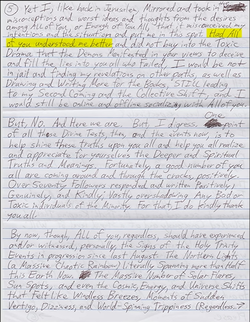 ⑤ Yet I, like back in Jerusalem, Mirrored and took in
misconceptions and worst ideas and thoughts from the desires
among All of You, on Events of me, that it misrepresented my
intentions and the situation and put me in this spot. Had All
of you understood me better and did not buy into the Toxic
Dreams that the Demons projected in my years to deceive
and fill the lie into you all and Failed, I would be not
in jail and finding my revelations on other paths, as well as
Drawing and Writing More for the Books, Still leading
to my Second Coming and the Collective Shift, and I
would still be online and offline socializing with All of you.
But, No. And Here we are. But, I digress. One point
of all these Divine Tests, then, and the events now, is to
help shine these truths upon you all and help you all realize
and appreciate for yourselves the Deeper and Spiritual
Truths and Meanings. Fortunately, a good number of you
all are coming around and through the cracks, positively.
Over Seventy Followers responded and written Positively,
Genuinely, and Kindly, Vastly overshadowing Any Bad or
Toxic Individuals of the Minority. For that, I do kindly thank
you all.
By now, though, All of you, regardless, should have experienced
and/or witnessed, personally, the Signs of the Holy Trinity
Events in progression since last August. The Northern Lights
(a Massive Chaotic Rainbow) literally Spanning more than half
this Earth Now. The Massive Number of Solar Flares,
Sun Spots, and even the Cosmic, Energy, and Universe Shifts
that Felt like Windless Breezes, Moments of Sudden
Vertigo, Dizziness, and World-Spinning Trippiness (Regardless of